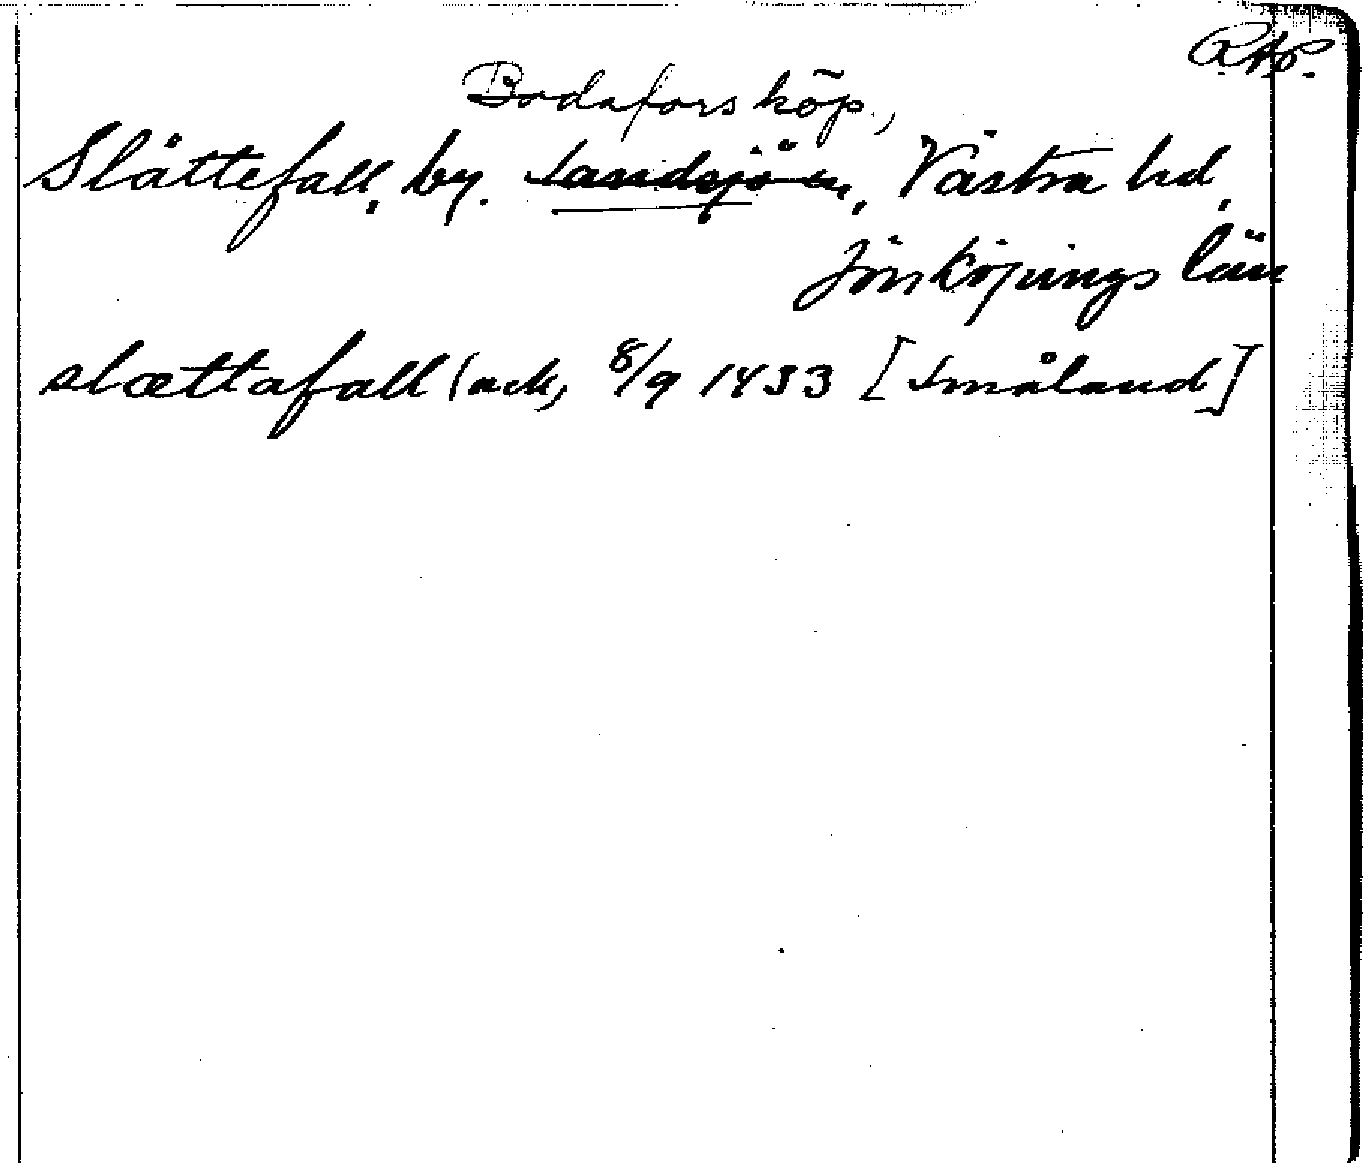 RAp.
Bodafors köp.,
Slättefall, by. Sandsjö sn, Västra hd,
Jönköpings län
slættafall (ack, 8/9 1433 [Småland]